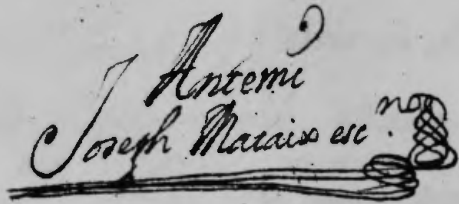 Antemi
Joseph Macaix esc.no